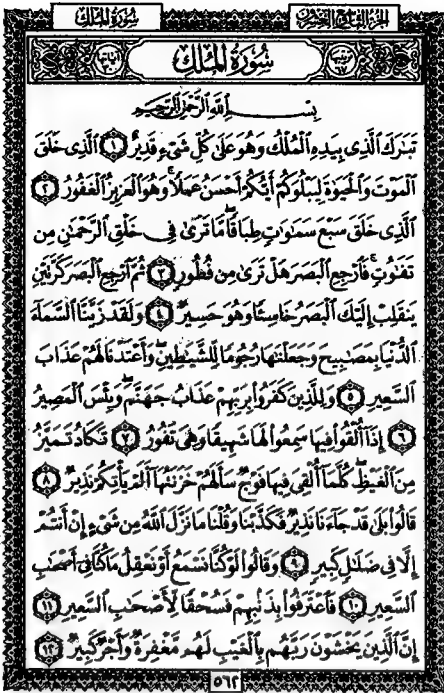 سُورَةُ المُلْكِ
الجُزْءُ التَّاسِعُ وَالعِشْرُونَ
سُورَةُ المُلْكِ
بِسْمِ اللَّهِ الرَّحْمَٰنِ الرَّحِيمِ
تَبَٰرَكَ الَّذِي بِيَدِهِ الْمُلْكُ وَهُوَ عَلَىٰ كُلِّ شَيْءٍ قَدِيرٌ ١ الَّذِي خَلَقَ
الْمَوْتَ وَالْحَيَوٰةَ لِيَبْلُوَكُمْ أَيُّكُمْ أَحْسَنُ عَمَلًا وَهُوَ الْعَزِيزُ الْغَفُورُ ٢
الَّذِي خَلَقَ سَبْعَ سَمَٰوَٰتٍ طِبَاقًا مَّا تَرَىٰ فِي خَلْقِ الرَّحْمَٰنِ مِن
تَفَٰوُتٍ فَارْجِعِ الْبَصَرَ هَلْ تَرَىٰ مِن فُطُورٍ ٣ ثُمَّ ارْجِعِ الْبَصَرَ كَرَّتَيْنِ
يَنقَلِبْ إِلَيْكَ الْبَصَرُ خَاسِئًا وَهُوَ حَسِيرٌ ٤ وَلَقَدْ زَيَّنَّا السَّمَاءَ
الدُّنْيَا بِمَصَٰبِيحَ وَجَعَلْنَٰهَا رُجُومًا لِّلشَّيَٰطِينِ وَأَعْتَدْنَا لَهُمْ عَذَابَ
السَّعِيرِ ٥ وَلِلَّذِينَ كَفَرُوا بِرَبِّهِمْ عَذَابُ جَهَنَّمَ وَبِئْسَ الْمَصِيرُ
٦ إِذَا أُلْقُوا فِيهَا سَمِعُوا لَهَا شَهِيقًا وَهِيَ تَفُورُ ٧ تَكَادُ تَمَيَّزُ
مِنَ الْغَيْظِ كُلَّمَا أُلْقِيَ فِيهَا فَوْجٌ سَأَلَهُمْ خَزَنَتُهَا أَلَمْ يَأْتِكُمْ نَذِيرٌ ٨
قَالُوا بَلَىٰ قَدْ جَاءَنَا نَذِيرٌ فَكَذَّبْنَا وَقُلْنَا مَا نَزَّلَ اللَّهُ مِن شَيْءٍ إِنْ أَنتُمْ
إِلَّا فِي ضَلَٰلٍ كَبِيرٍ ٩ وَقَالُوا لَوْ كُنَّا نَسْمَعُ أَوْ نَعْقِلُ مَا كُنَّا فِي أَصْحَٰبِ
السَّعِيرِ ١٠ فَاعْتَرَفُوا بِذَنبِهِمْ فَسُحْقًا لِّأَصْحَٰبِ السَّعِيرِ ١١
إِنَّ الَّذِينَ يَخْشَوْنَ رَبَّهُم بِالْغَيْبِ لَهُم مَّغْفِرَةٌ وَأَجْرٌ كَبِيرٌ ١٢
٥٦٢